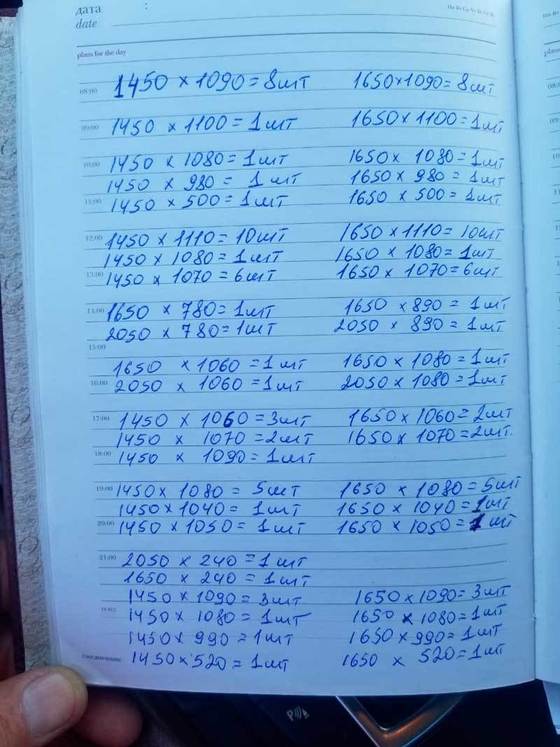 дата
date
plans for the day
08:00 1450 × 1090 = 8 шт 1650 × 1090 = 8 шт
09:00 1450 × 1100 = 1 шт 1650 × 1100 = 1 шт
10:00 1450 × 1080 = 1 шт 1650 × 1080 = 1 шт
1450 × 980 = 1 шт 1650 × 980 = 1 шт
11:00 1450 × 500 = 1 шт 1650 × 500 = 1 шт
12:00 1450 × 1110 = 10 шт 1650 × 1110 = 10 шт
1450 × 1080 = 1 шт 1650 × 1080 = 1 шт
13:00 1450 × 1070 = 6 шт 1650 × 1070 = 6 шт
14:00 1650 × 780 = 1 шт 1650 × 890 = 1 шт
2050 × 780 = 1 шт 2050 × 890 = 1 шт
15:00
1650 × 1060 = 1 шт 1650 × 1080 = 1 шт
16:00 2050 × 1060 = 1 шт 2050 × 1080 = 1 шт
17:00 1450 × 1060 = 3 шт 1650 × 1060 = 2 шт
1450 × 1070 = 2 шт 1650 × 1070 = 2 шт.
18:00 1450 × 1090 = 1 шт
19:00 1450 × 1080 = 5 шт 1650 × 1080 = 5 шт
1450 × 1040 = 1 шт 1650 × 1040 = 1 шт
20:00 1450 × 1050 = 1 шт 1650 × 1050 = 1 шт
21:00 2050 × 240 = 1 шт
1650 × 240 = 1 шт
1450 × 1090 = 3 шт 1650 × 1090 = 3 шт
1450 × 1080 = 1 шт 1650 × 1080 = 1 шт
1450 × 990 = 1 шт 1650 × 990 = 1 шт
1450 × 520 = 1 шт 1650 × 520 = 1 шт